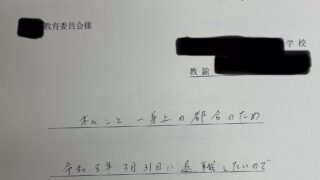 教育委員会様
学校
教諭
私こと 一身上の都合のため
令和8年3月31日に退職したいので